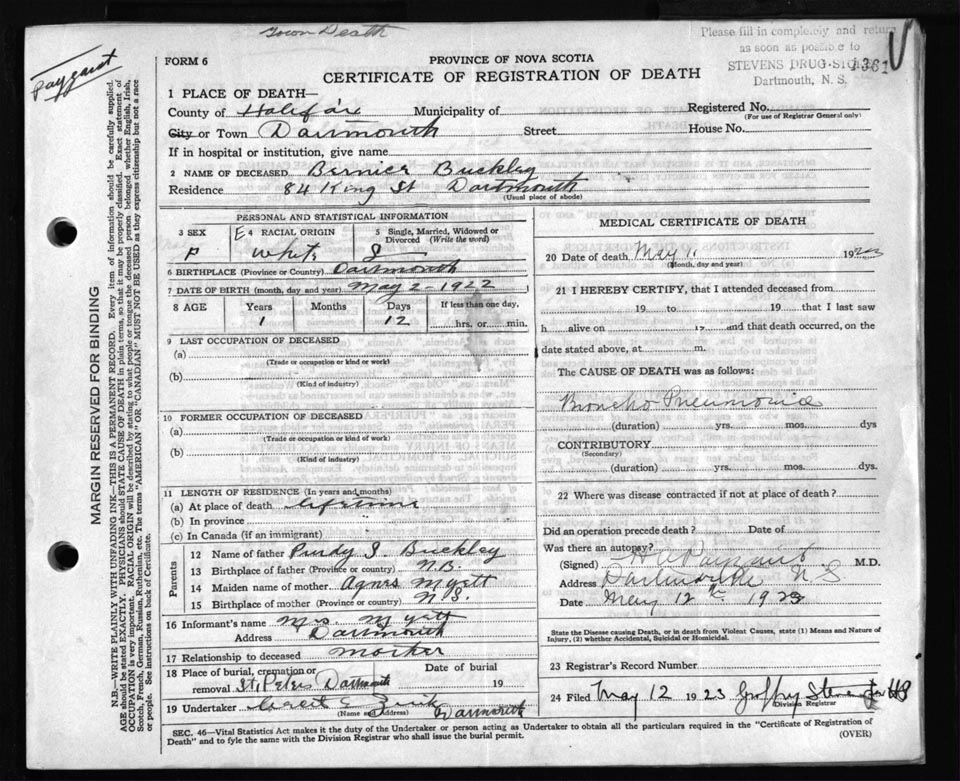 Town Death
Please fill in completely and return
as soon as possible to
STEVENS DRUG STORE
Dartmouth, N. S.
1361
Paygant
FORM 6
PROVINCE OF NOVA SCOTIA
CERTIFICATE OF REGISTRATION OF DEATH
1 PLACE OF DEATH—
County of Halifax Municipality of Registered No.
(For use of Registrar General only)
City or Town Dartmouth Street House No.
If in hospital or institution, give name
2 NAME OF DECEASED Bernier Buckley
Residence 84 King St Dartmouth
(Usual place of abode)
PERSONAL AND STATISTICAL INFORMATION
3 SEX 4 RACIAL ORIGIN 5 Single, Married, Widowed or
Divorced (Write the word)
F E white S
6 BIRTHPLACE (Province or Country) Dartmouth
7 DATE OF BIRTH (month, day and year) May 2 - 1922
8 AGE Years Months Days If less than one day,
1 12 hrs. or min.
9 LAST OCCUPATION OF DECEASED
(a)
(Trade or occupation or kind or work)
(b)
(Kind of industry)
10 FORMER OCCUPATION OF DECEASED
(a)
(Trade or occupation or kind or work)
(b)
(Kind of industry)
11 LENGTH OF RESIDENCE (In years and months)
(a) At place of death lifetime
(b) In province
(c) In Canada (if an immigrant)
Parents
12 Name of father Purdy J. Buckley
13 Birthplace of father (Province or country) N.B.
14 Maiden name of mother Agnes Myett
15 Birthplace of mother (Province or country) N.S.
16 Informant's name Mrs. Myatt
Address Dartmouth
17 Relationship to deceased Mother
18 Place of burial, cremation or Date of burial
removal St. Peters Dartmouth 19
19 Undertaker Zink Dartmouth
(Name and Address)
MEDICAL CERTIFICATE OF DEATH
20 Date of death May 11 192
(Month, day and year)
21 I HEREBY CERTIFY, that I attended deceased from
19 to 19 that I last saw
h alive on 19 and that death occurred, on the
date stated above, at m.
The CAUSE OF DEATH was as follows:
Broncho Pneumonia
(duration) yrs. mos. dys
CONTRIBUTORY
(Secondary)
(duration) yrs. mos. dys.
22 Where was disease contracted if not at place of death?
Did an operation precede death? Date of
Was there an autopsy?
(Signed) Payzant M.D.
Address Dartmouth N S
Date May 12th 1923
State the Disease causing Death, or in death from Violent Causes, state (1) Means and Nature of
Injury, (2) whether Accidental, Suicidal or Homicidal.
23 Registrar's Record Number
24 Filed May 12 1923 Geoffrey Stevens
Division Registrar
SEC. 46—Vital Statistics Act makes it the duty of the Undertaker or person acting as Undertaker to obtain all the particulars required in the "Certificate of Registration of
Death" and to fyle the same with the Division Registrar who shall issue the burial permit.
(OVER)
MARGIN RESERVED FOR BINDING
N.B.—WRITE PLAINLY WITH UNFADING INK—THIS IS A PERMANENT RECORD. Every item of information should be carefully supplied.
AGE should be stated EXACTLY. PHYSICIANS should STATE CAUSE OF DEATH in plain terms, so that it may be properly classified. Exact statement of
OCCUPATION is very important. RACIAL ORIGIN will be described by stating to what people or tongue the deceased person belonged whether English, Irish,
Scotch, French, German, Russian, Ruthenian, etc. The terms "AMERICAN" OR "CANADIAN" MUST NOT BE USED as they express citizenship but not a race
or people. See instructions on back of Certificate.